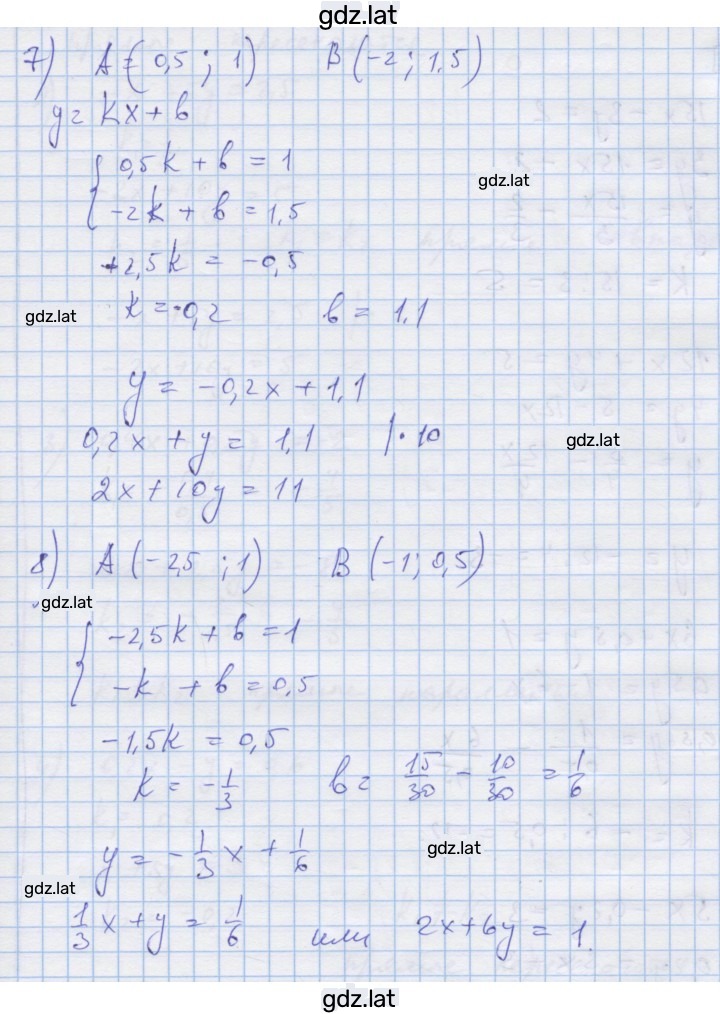 gdz.lat
7) A = (0,5 ; 1) B (-2 ; 1,5)
y = kx + b
{ 0,5k + b = 1
gdz.lat
-2k + b = 1,5
+2,5k = -0,5
gdz.lat k = -0,2 b = 1,1
y = -0,2x + 1,1
0,2x + y = 1,1 | · 10 gdz.lat
2x + 10y = 11
8) A (-2,5 ; 1) B (-1 ; 0,5)
gdz.lat
{ -2,5k + b = 1
-k + b = 0,5
-1,5k = 0,5
k = -1/3 b = 15/30 - 10/30 = 1/6
y = -1/3 x + 1/6 gdz.lat
gdz.lat
1/3 x + y = 1/6 или 2x + 6y = 1
gdz.lat